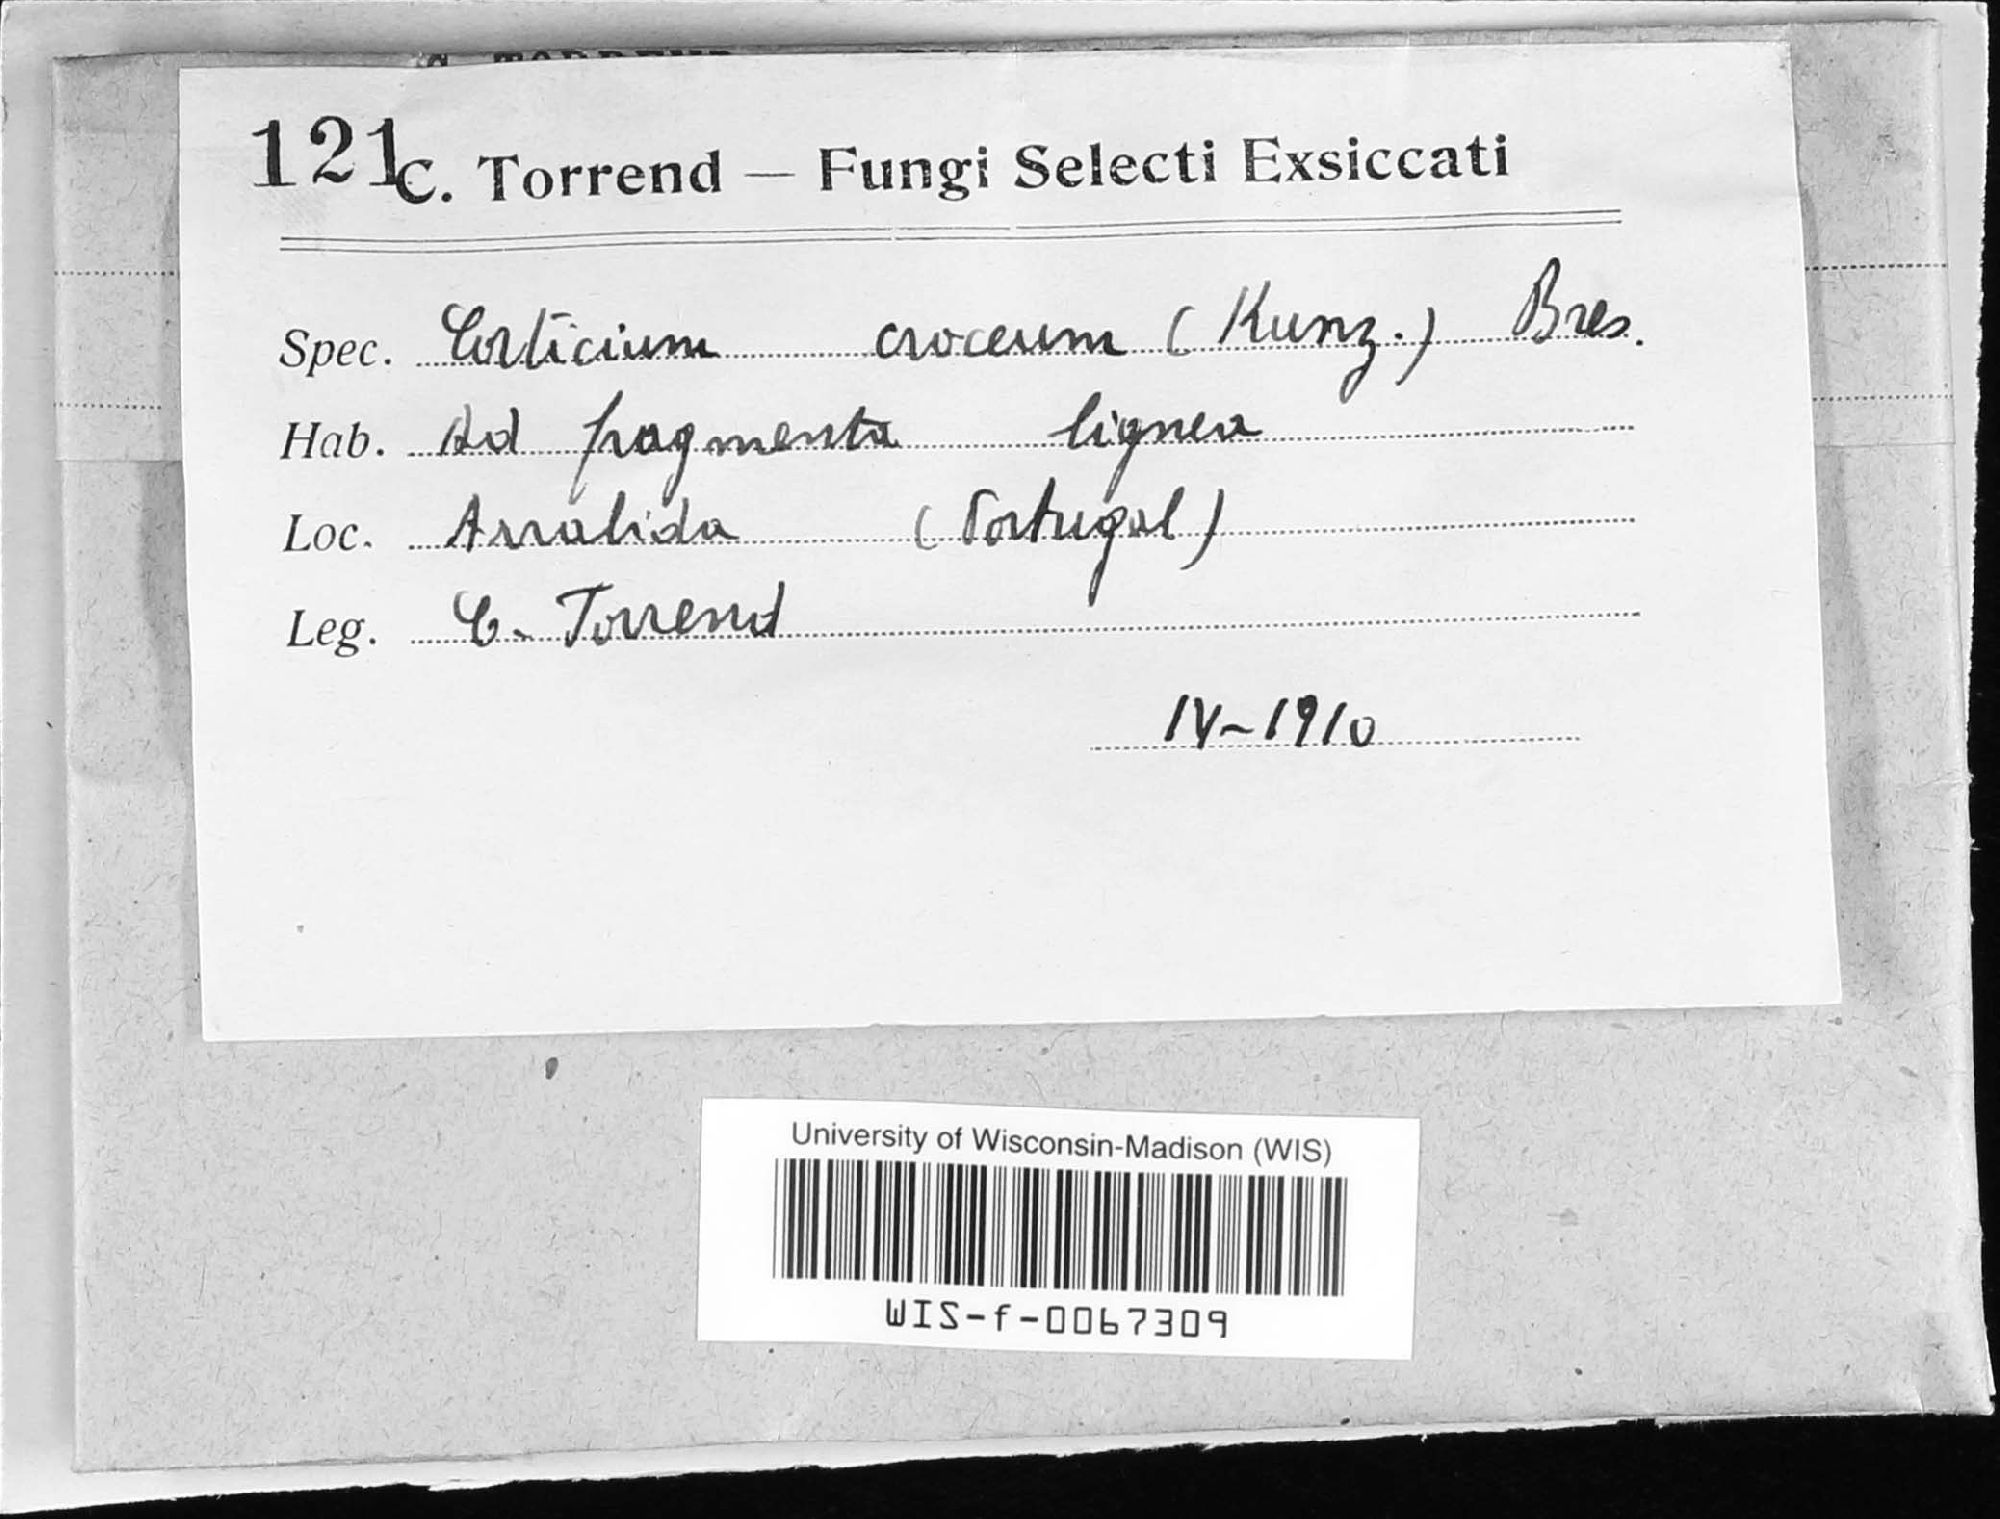 121 C. Torrend — Fungi Selecti Exsiccati
Spec. Corticium croceum (Kunz.) Bres.
Hab. Ad fragmenta lignea
Loc. Arrabida (Portugal)
Leg. C. Torrend
IV-1910
University of Wisconsin-Madison (WIS)
WIS-f-0067309